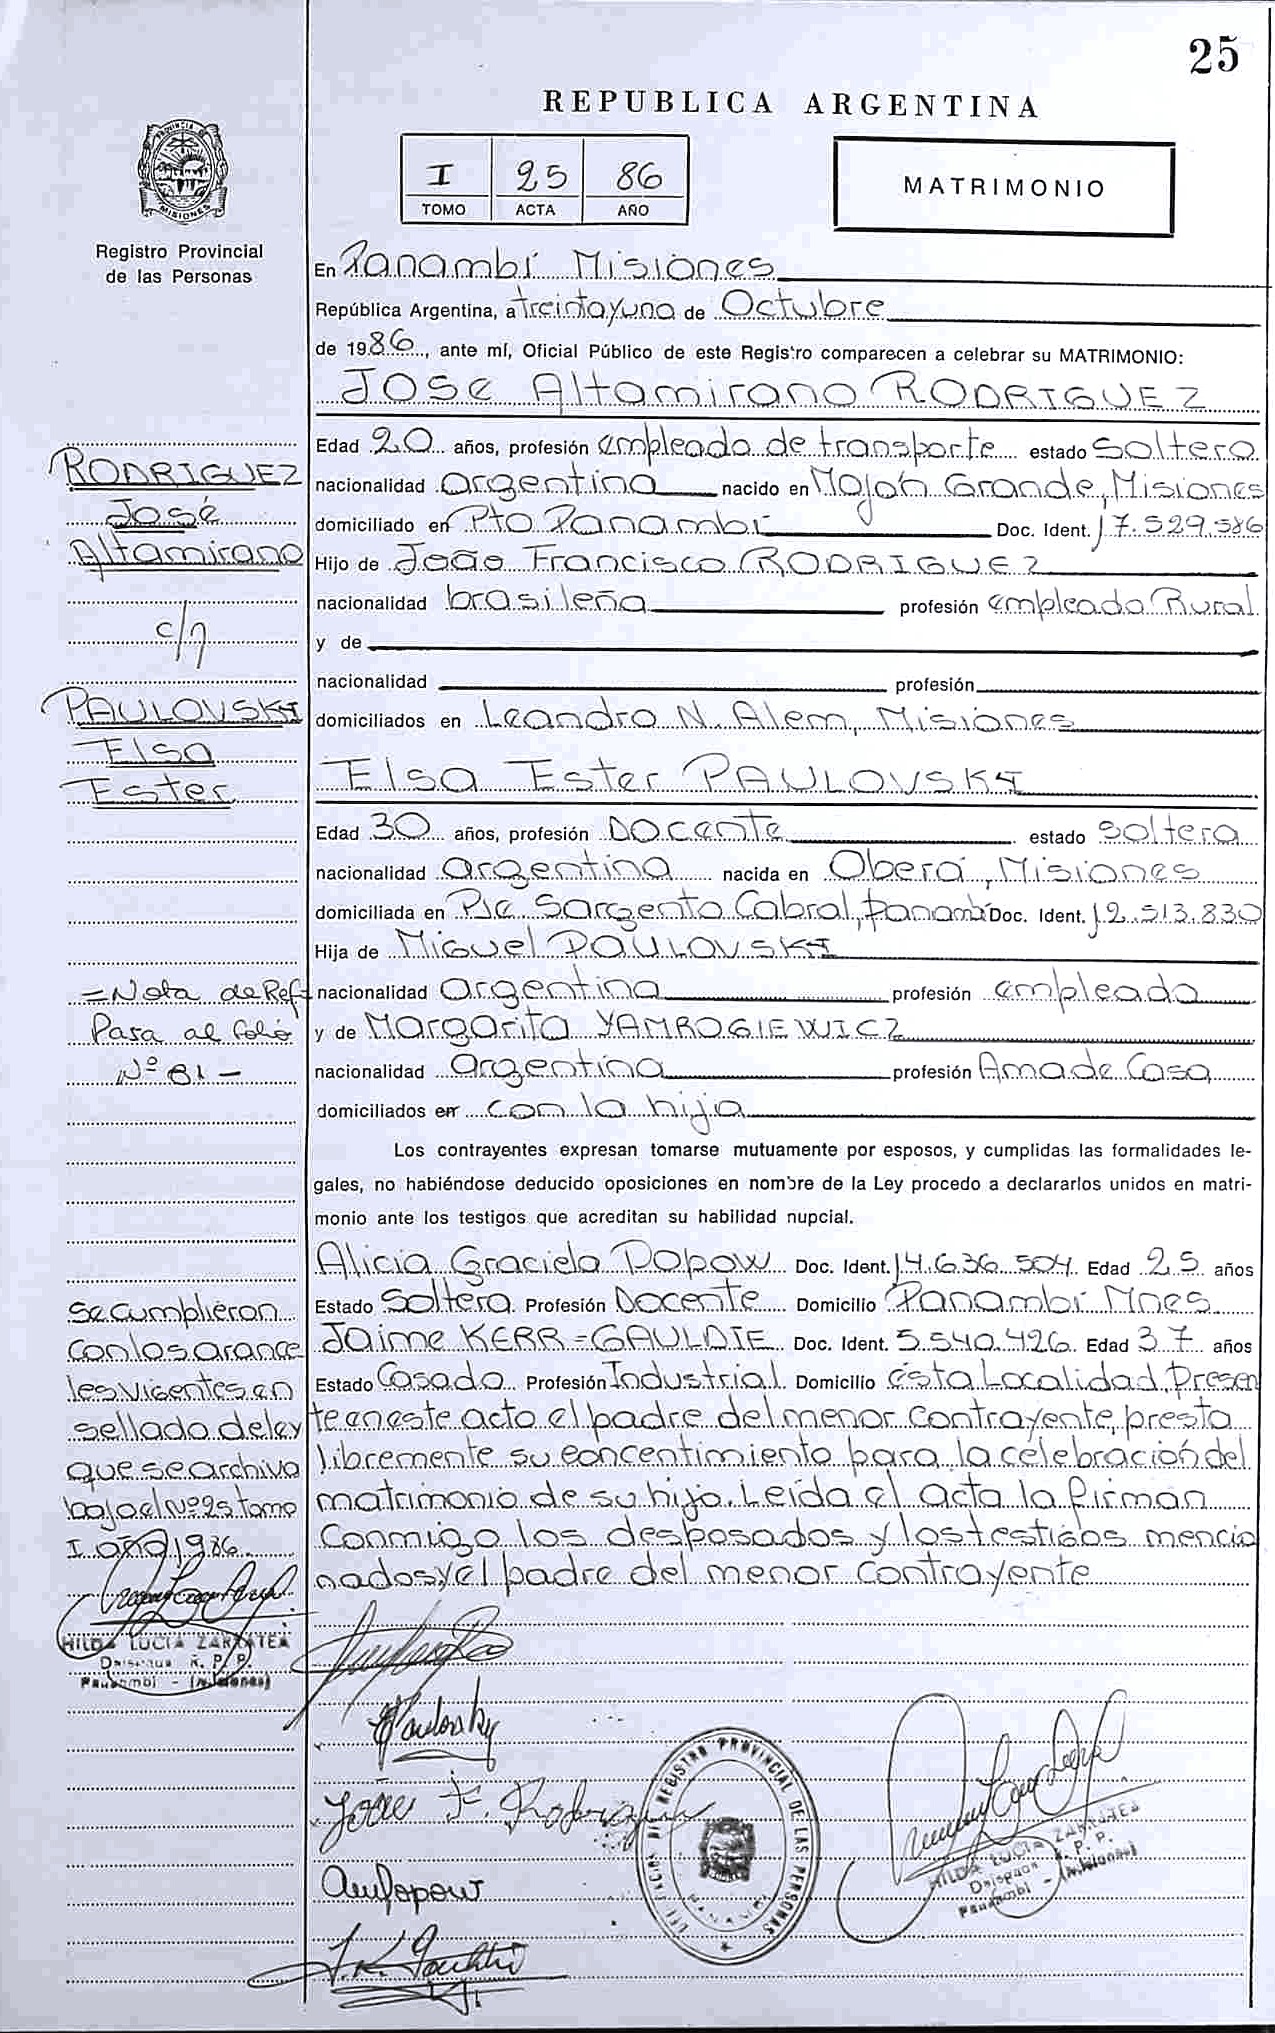 25
REPUBLICA ARGENTINA
I 25 86
TOMO ACTA AÑO
MATRIMONIO
PROVINCIA DE
MISIONES
Registro Provincial
de las Personas
En Panambí Misiones
República Argentina, a treintayuno de Octubre
de 1986, ante mí, Oficial Público de este Registro comparecen a celebrar su MATRIMONIO:
José Altamirano RODRIGUEZ
Edad 20 años, profesión empleado de transporte estado soltero
nacionalidad argentina nacido en Mojón Grande, Misiones
domiciliado en Pto Panambí Doc. Ident. 17.529.586
Hijo de João Francisco RODRIGUEZ
nacionalidad brasileña profesión empleado Rural
y de
nacionalidad profesión
domiciliados en Leandro N. Alem, Misiones
Elsa Ester PAULOVSKI
Edad 30 años, profesión Docente estado soltera
nacionalidad argentina nacida en Oberá, Misiones
domiciliada en Pje Sargento Cabral, Panambí Doc. Ident. 12.513.830
Hija de Miguel PAULOVSKI
nacionalidad argentina profesión empleado
y de Margarita YAMROGIEWICZ
nacionalidad argentina profesión Ama de Casa
domiciliados en con la hija
Los contrayentes expresan tomarse mutuamente por esposos, y cumplidas las formalidades le-
gales, no habiéndose deducido oposiciones en nombre de la Ley procedo a declararlos unidos en matri-
monio ante los testigos que acreditan su habilidad nupcial.
Alicia Graciela Popow Doc. Ident. 14.636.504 Edad 25 años
Estado Soltera Profesión Docente Domicilio Panambí Mnes
Jaime KERR=GAULDIE Doc. Ident. 5.540.426 Edad 37 años
Estado Casado Profesión Industrial Domicilio ésta Localidad, Presen
te en este acto el padre del menor contrayente, presta
libremente su concentimiento para la celebración del
matrimonio de su hijo. Leída el acta la firman
conmigo los desposados y los testigos mencio
nados y el padre del menor contrayente
RODRIGUEZ
José
Altamirano
c/
PAULOVSKI
Elsa
Ester
=Nota de Ref=
Pasa al folio
Nº 81-
Se cumplieron
con los arance
les vigentes en
sellado de ley
que se archiva
bajo el Nº 25 tomo
I año 1986.
HILDA LUCIA ZARRATEA
R. P. P.
Panambi - (Misiones)
EPaulovsky
João F. Rodriguez
REGISTRO PROVINCIAL DE LAS PERSONAS
PANAMBI
HILDA LUCIA ZARRATEA
R. P. P.
Panambi - (Misiones)